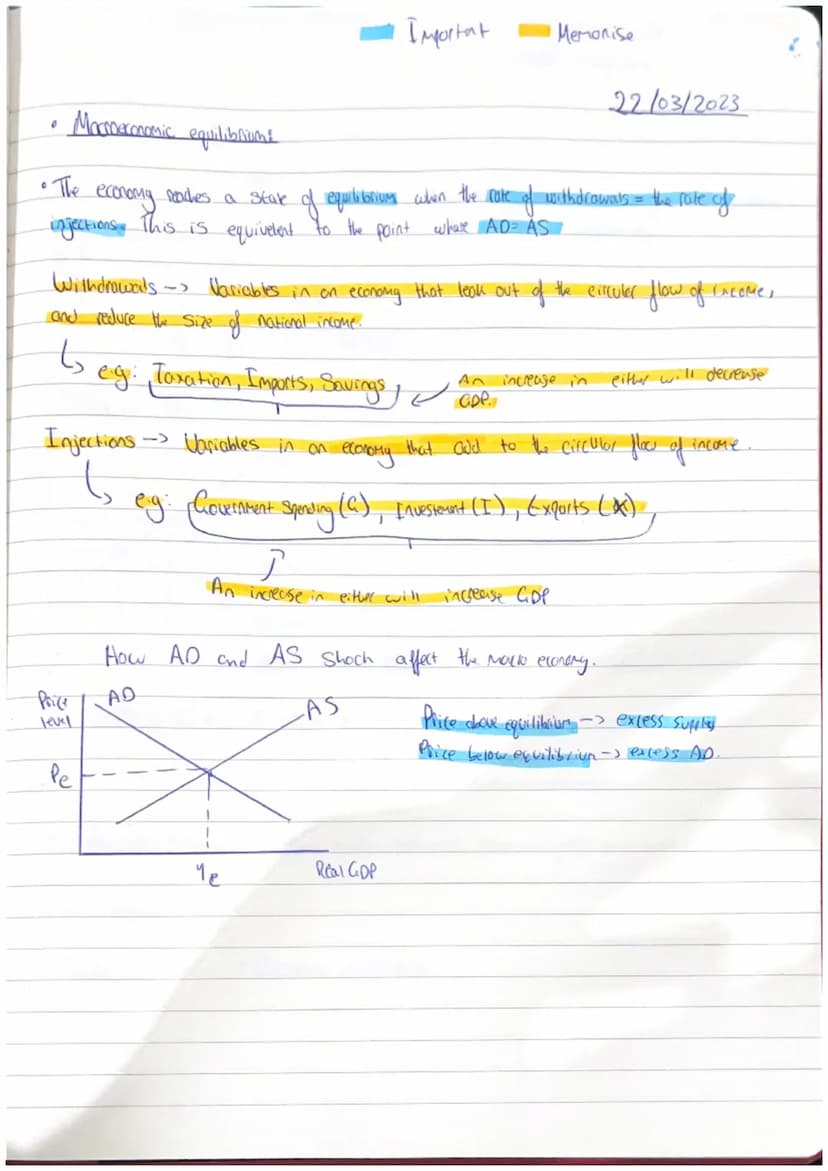 Important Memorise
22/03/2023
• Macroeconomic equilibrium:
• The economy reaches a state of equilibrium when the rate of withdrawals = the rate of
injections. This is equivelent to the point where AD=AS
Withdrawals --> Variables in an economy that leak out of the circular flow of income,
and reduce the size of national income.
e.g: Taxation, Imports, Savings
An increase in either will decrease
GDP.
Injections --> Variables in an economy that add to the circular flow of income.
e.g: Government Spending (G), Investment (I), Exports (X)
An increase in either will increase GDP
How AD and AS shock affect the macro economy.
Price
level
AD
AS
Pe
Ye
Real GDP
Price above equilibrium --> excess supply
Price below equilibrium --> excess AD.